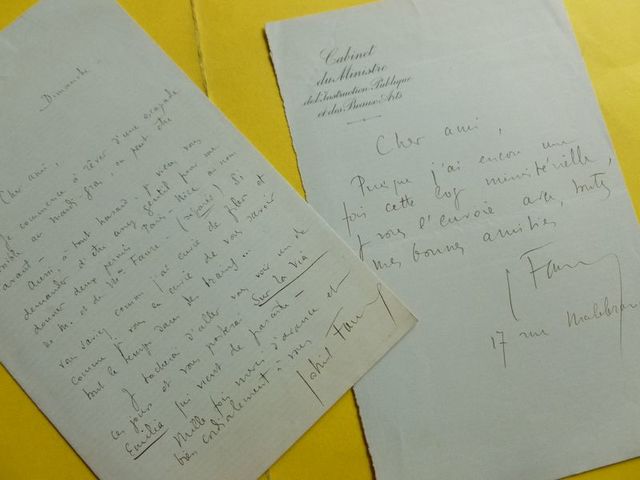 Dimanche
Cher ami,
Je commence à rêver d'une escapade
au mardi gras, ou peut être
avant -
Aussi, à tout hasard, je viens vous
demander d'être assez gentil pour me
donner deux permis Paris-Nice au nom
de M. et de Mme Faure - (rapide) Si
vous saviez comme j'ai envie de filer et
comme j'en
tout le temps dans les
Je tâcherai d'aller vous voir un de
ces jours et vous porterai Sur la Via
Emilia qui vient de paraître -
Mille fois merci d'avance et
bien cordialement à vous
Gabriel Faure
Cabinet
du Ministre
de l'Instruction Publique
et des Beaux-Arts
Cher ami,
Puisque j'ai encore une
fois cette
ministérielle,
je vous l'envoie avec toutes
mes bonnes amitiés
Faure
17 rue